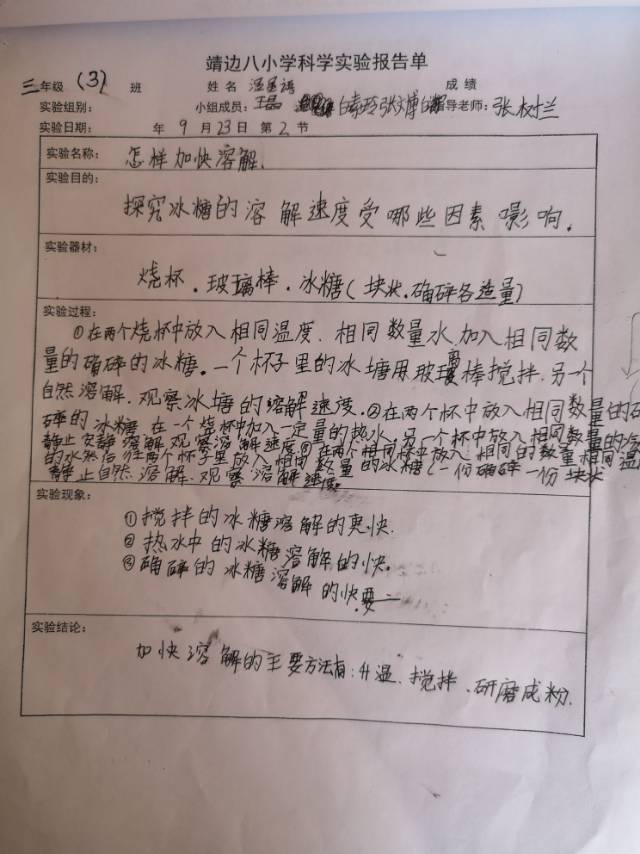 靖边八小学科学实验报告单
三年级(3)班 姓名 成绩
实验组别： 小组成员：王晶 白素玲张文博 导老师：张树兰
实验日期： 年9月23日第2节
实验名称：怎样加快溶解.
实验目的：
探究冰糖的溶解速度受哪些因素影响.
实验器材：
烧杯.玻璃棒.冰糖(块状.确碎各适量)
实验过程：
①在两个烧杯中放入相同温度.相同数量水,加入相同数
量的确碎的冰糖.一个杯子里的冰塘用玻璃棒搅拌.另一个
自然溶解.观察冰塘的溶解速度.②在两个杯中放入相同数量的确
碎的冰糖.在一个烧杯中加入一定量的热水,另一个杯中放入相同数量的冷水
静止安静溶解观察溶解速度③在两个相同杯中放入相同的数量相同温
的水然后往两个杯子里放入相同数量的冰糖(一份确碎一份块状
静止自然溶解.观察溶解速度
实验现象：
①搅拌的冰糖溶解的更快.
②热水中的冰糖溶解的快.
③确碎的冰糖溶解的快.
实验结论：
加快溶解的主要方法有:升温.搅拌.研磨成粉.